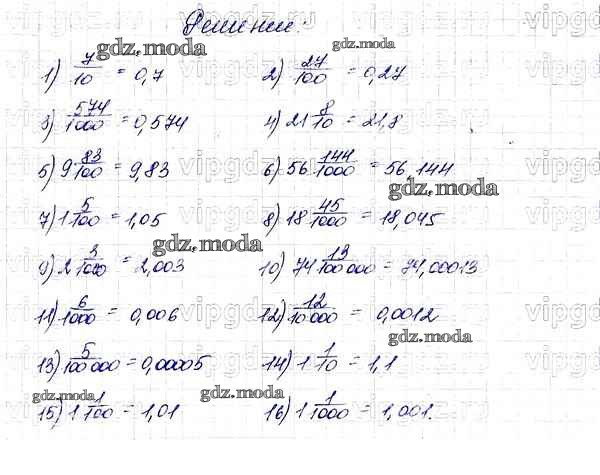 Решение:
1) 7/10 = 0,7 2) 27/100 = 0,27
3) 574/1000 = 0,574 4) 21 8/10 = 21,8
5) 9 83/100 = 9,83 6) 56 144/1000 = 56,144
7) 1 5/100 = 1,05 8) 18 45/1000 = 18,045
9) 2 3/1000 = 2,003 10) 74 13/100000 = 74,00013
11) 6/1000 = 0,006 12) 12/10000 = 0,0012
13) 5/100000 = 0,00005 14) 1 1/10 = 1,1
15) 1 1/100 = 1,01 16) 1 1/1000 = 1,001.
gdz.moda
gdz.moda
gdz.moda
gdz.moda
gdz.moda
gdz.moda
gdz.moda
vipgdz.ru